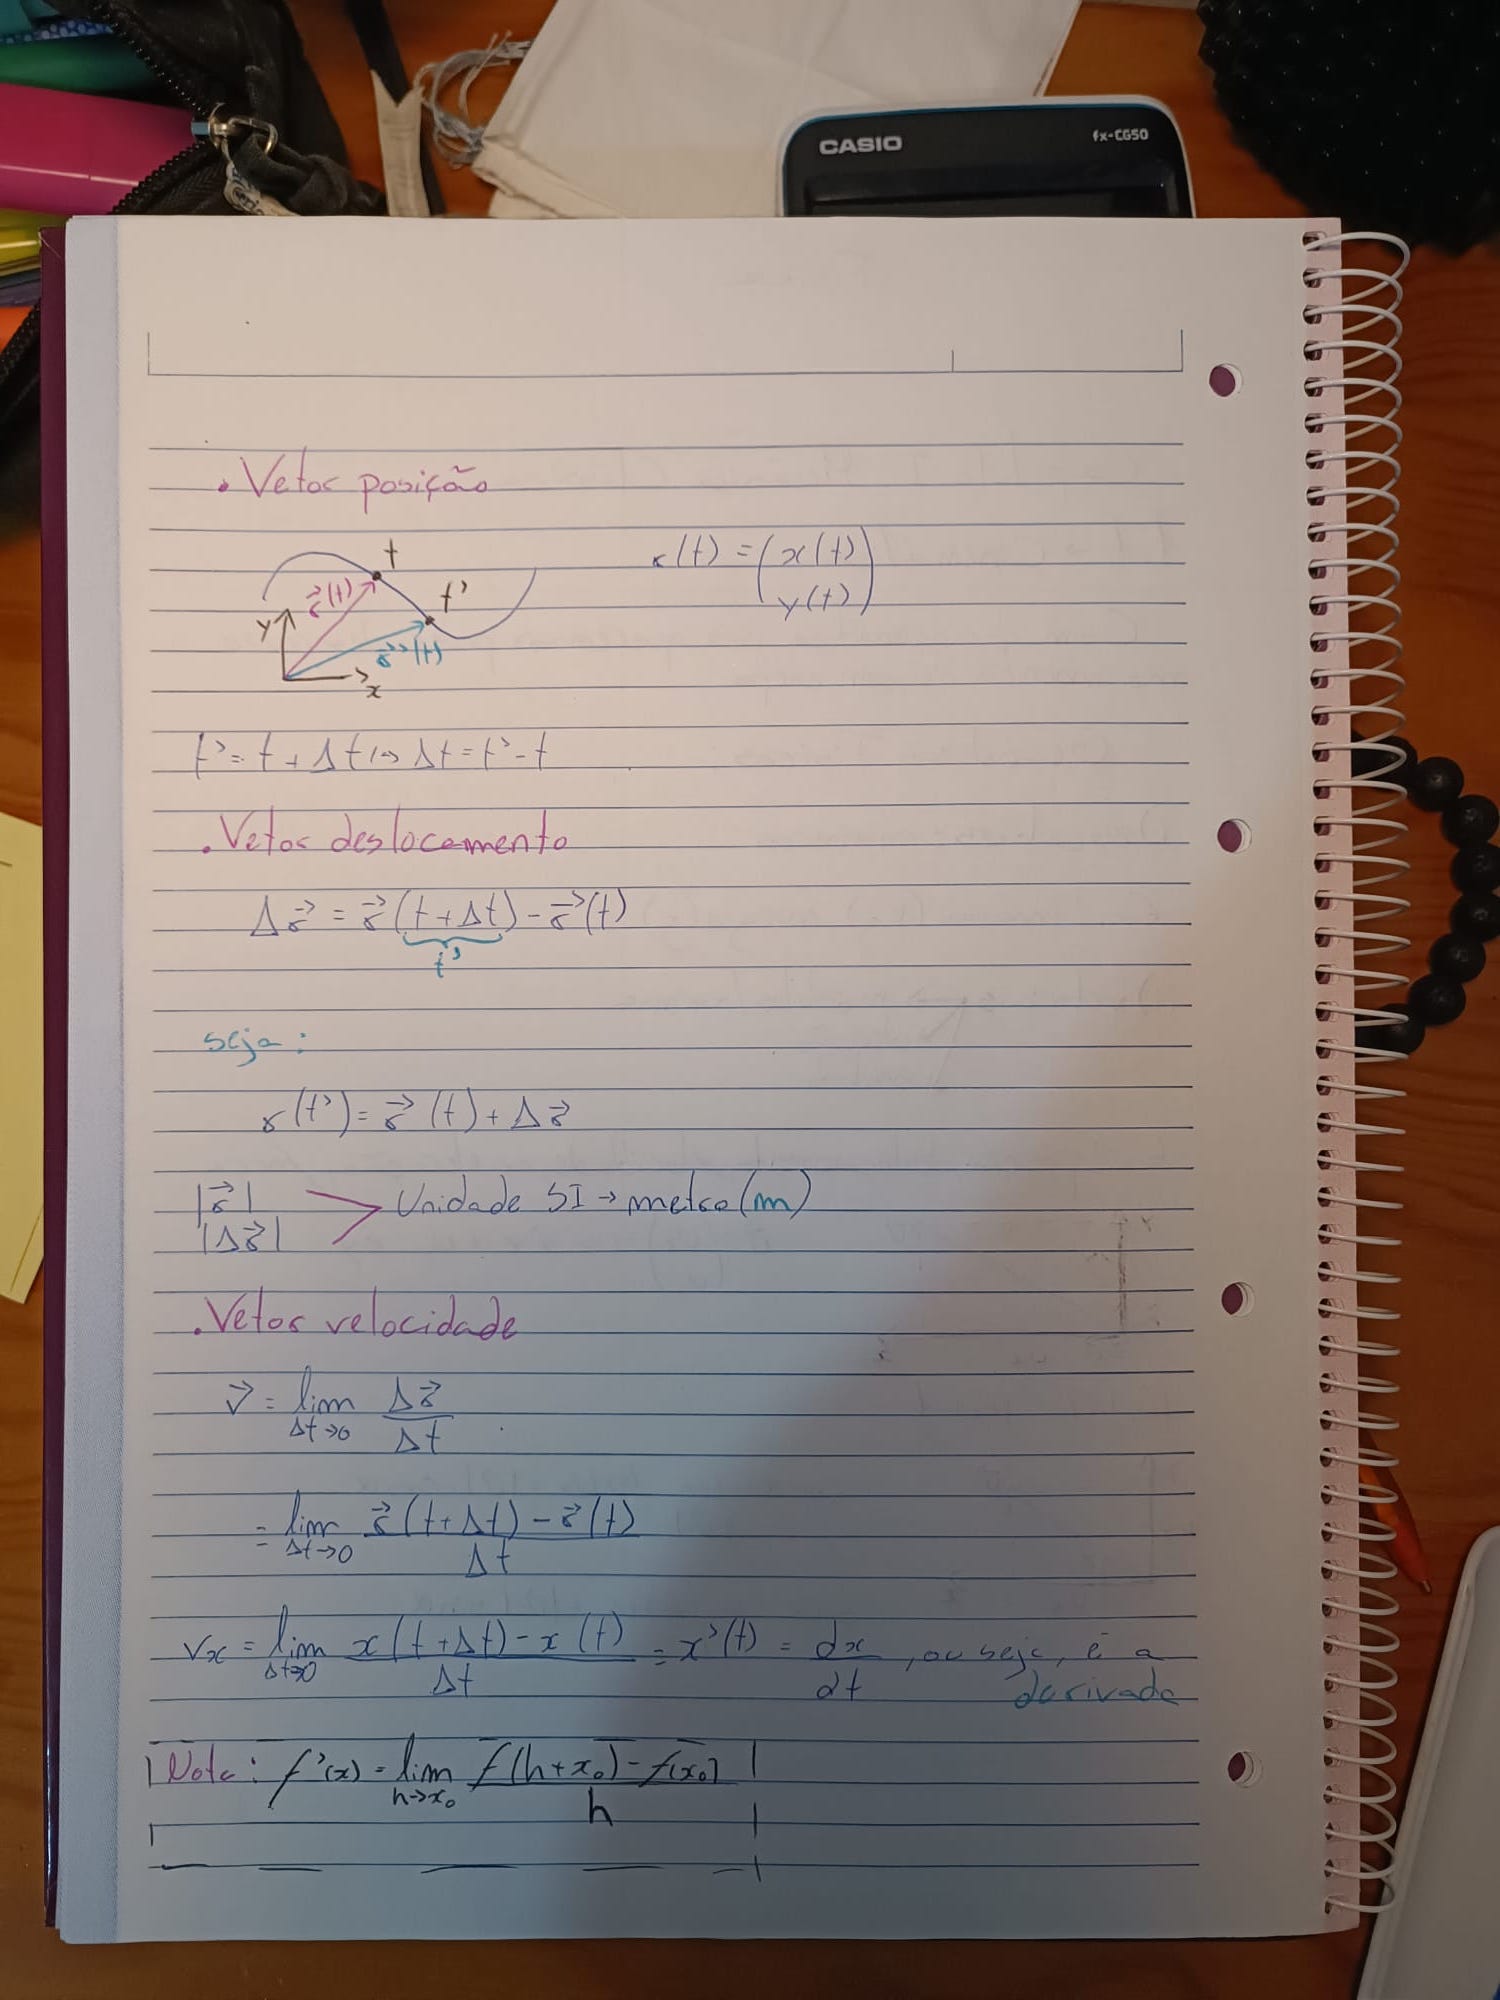 CASIO fx-CG50
. Vetor posição
t
t'
r⃗(t)
r⃗'(t)
y
x
r(t) = ( x(t)
y(t) )
t' = t + Δt ↦ Δt = t' - t
. Vetor deslocamento
Δr⃗ = r⃗(t+Δt) - r⃗(t)
t'
seja:
r(t') = r⃗(t) + Δr⃗
|r⃗|
|Δr⃗|
Unidade SI → metro (m)
. Vetor velocidade
v⃗ = lim Δt→0 Δr⃗/Δt
= lim Δt→0 (r⃗(t+Δt) - r⃗(t))/Δt
vx = lim Δt→0 (x(t+Δt) - x(t))/Δt = x'(t) = dx/dt , ou seja, é a
derivada
Nota: f'(x) = lim h→x₀ (f(h+x₀) - f(x₀))/h